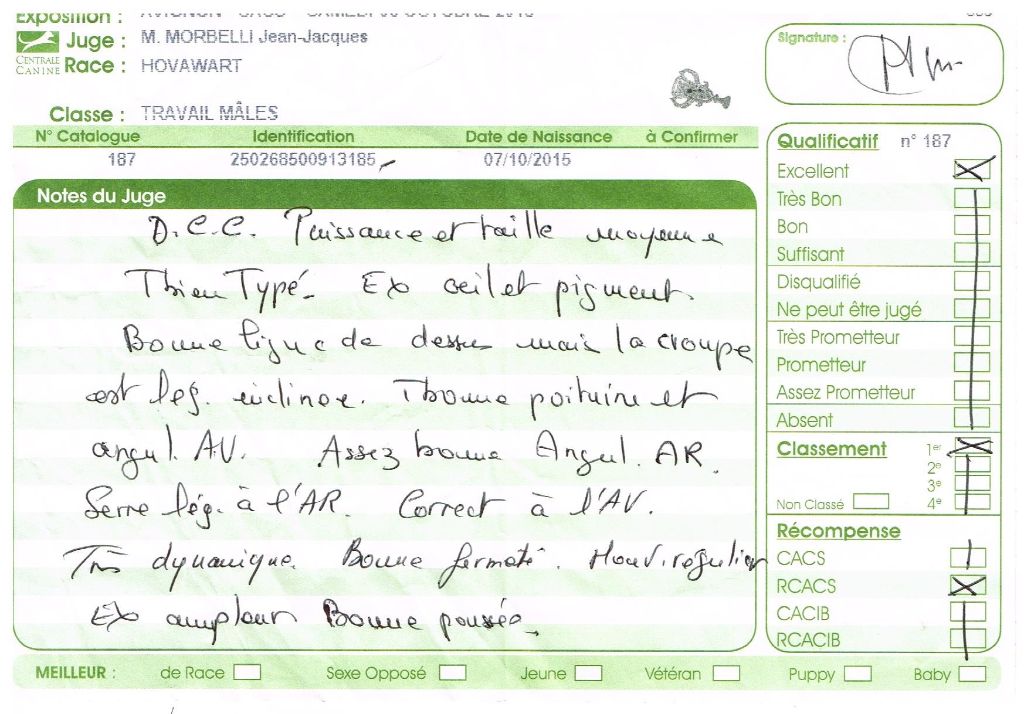 Exposition : AVIGNON - CACS - SAMEDI 06 OCTOBRE 2018
Juge : M. MORBELLI Jean-Jacques
CENTRALE CANINE
Race : HOVAWART
Signature :
Classe : TRAVAIL MÂLES
N° Catalogue Identification Date de Naissance à Confirmer
187 250268500913185 07/10/2015
Qualificatif n° 187
Excellent
Très Bon
Bon
Suffisant
Disqualifié
Ne peut être jugé
Très Prometteur
Prometteur
Assez Prometteur
Absent
Classement 1er
2e
3e
Non Classé 4e
Récompense
CACS
RCACS
CACIB
RCACIB
Notes du Juge
D.C.C. Puissance et taille moyenne
Bien Typé. Ex oeil et pigment.
Bonne ligne de dessus mais la croupe
est lég. inclinée. Bonne poitrine et
angul. AV. Assez bonne Angul. AR.
Serre lég. à l'AR. Correct à l'AV.
Très dynamique. Bonne fermeté. Mouv. régulier
Ex ampleur Bonne poussée.
MEILLEUR : de Race Sexe Opposé Jeune Vétéran Puppy Baby